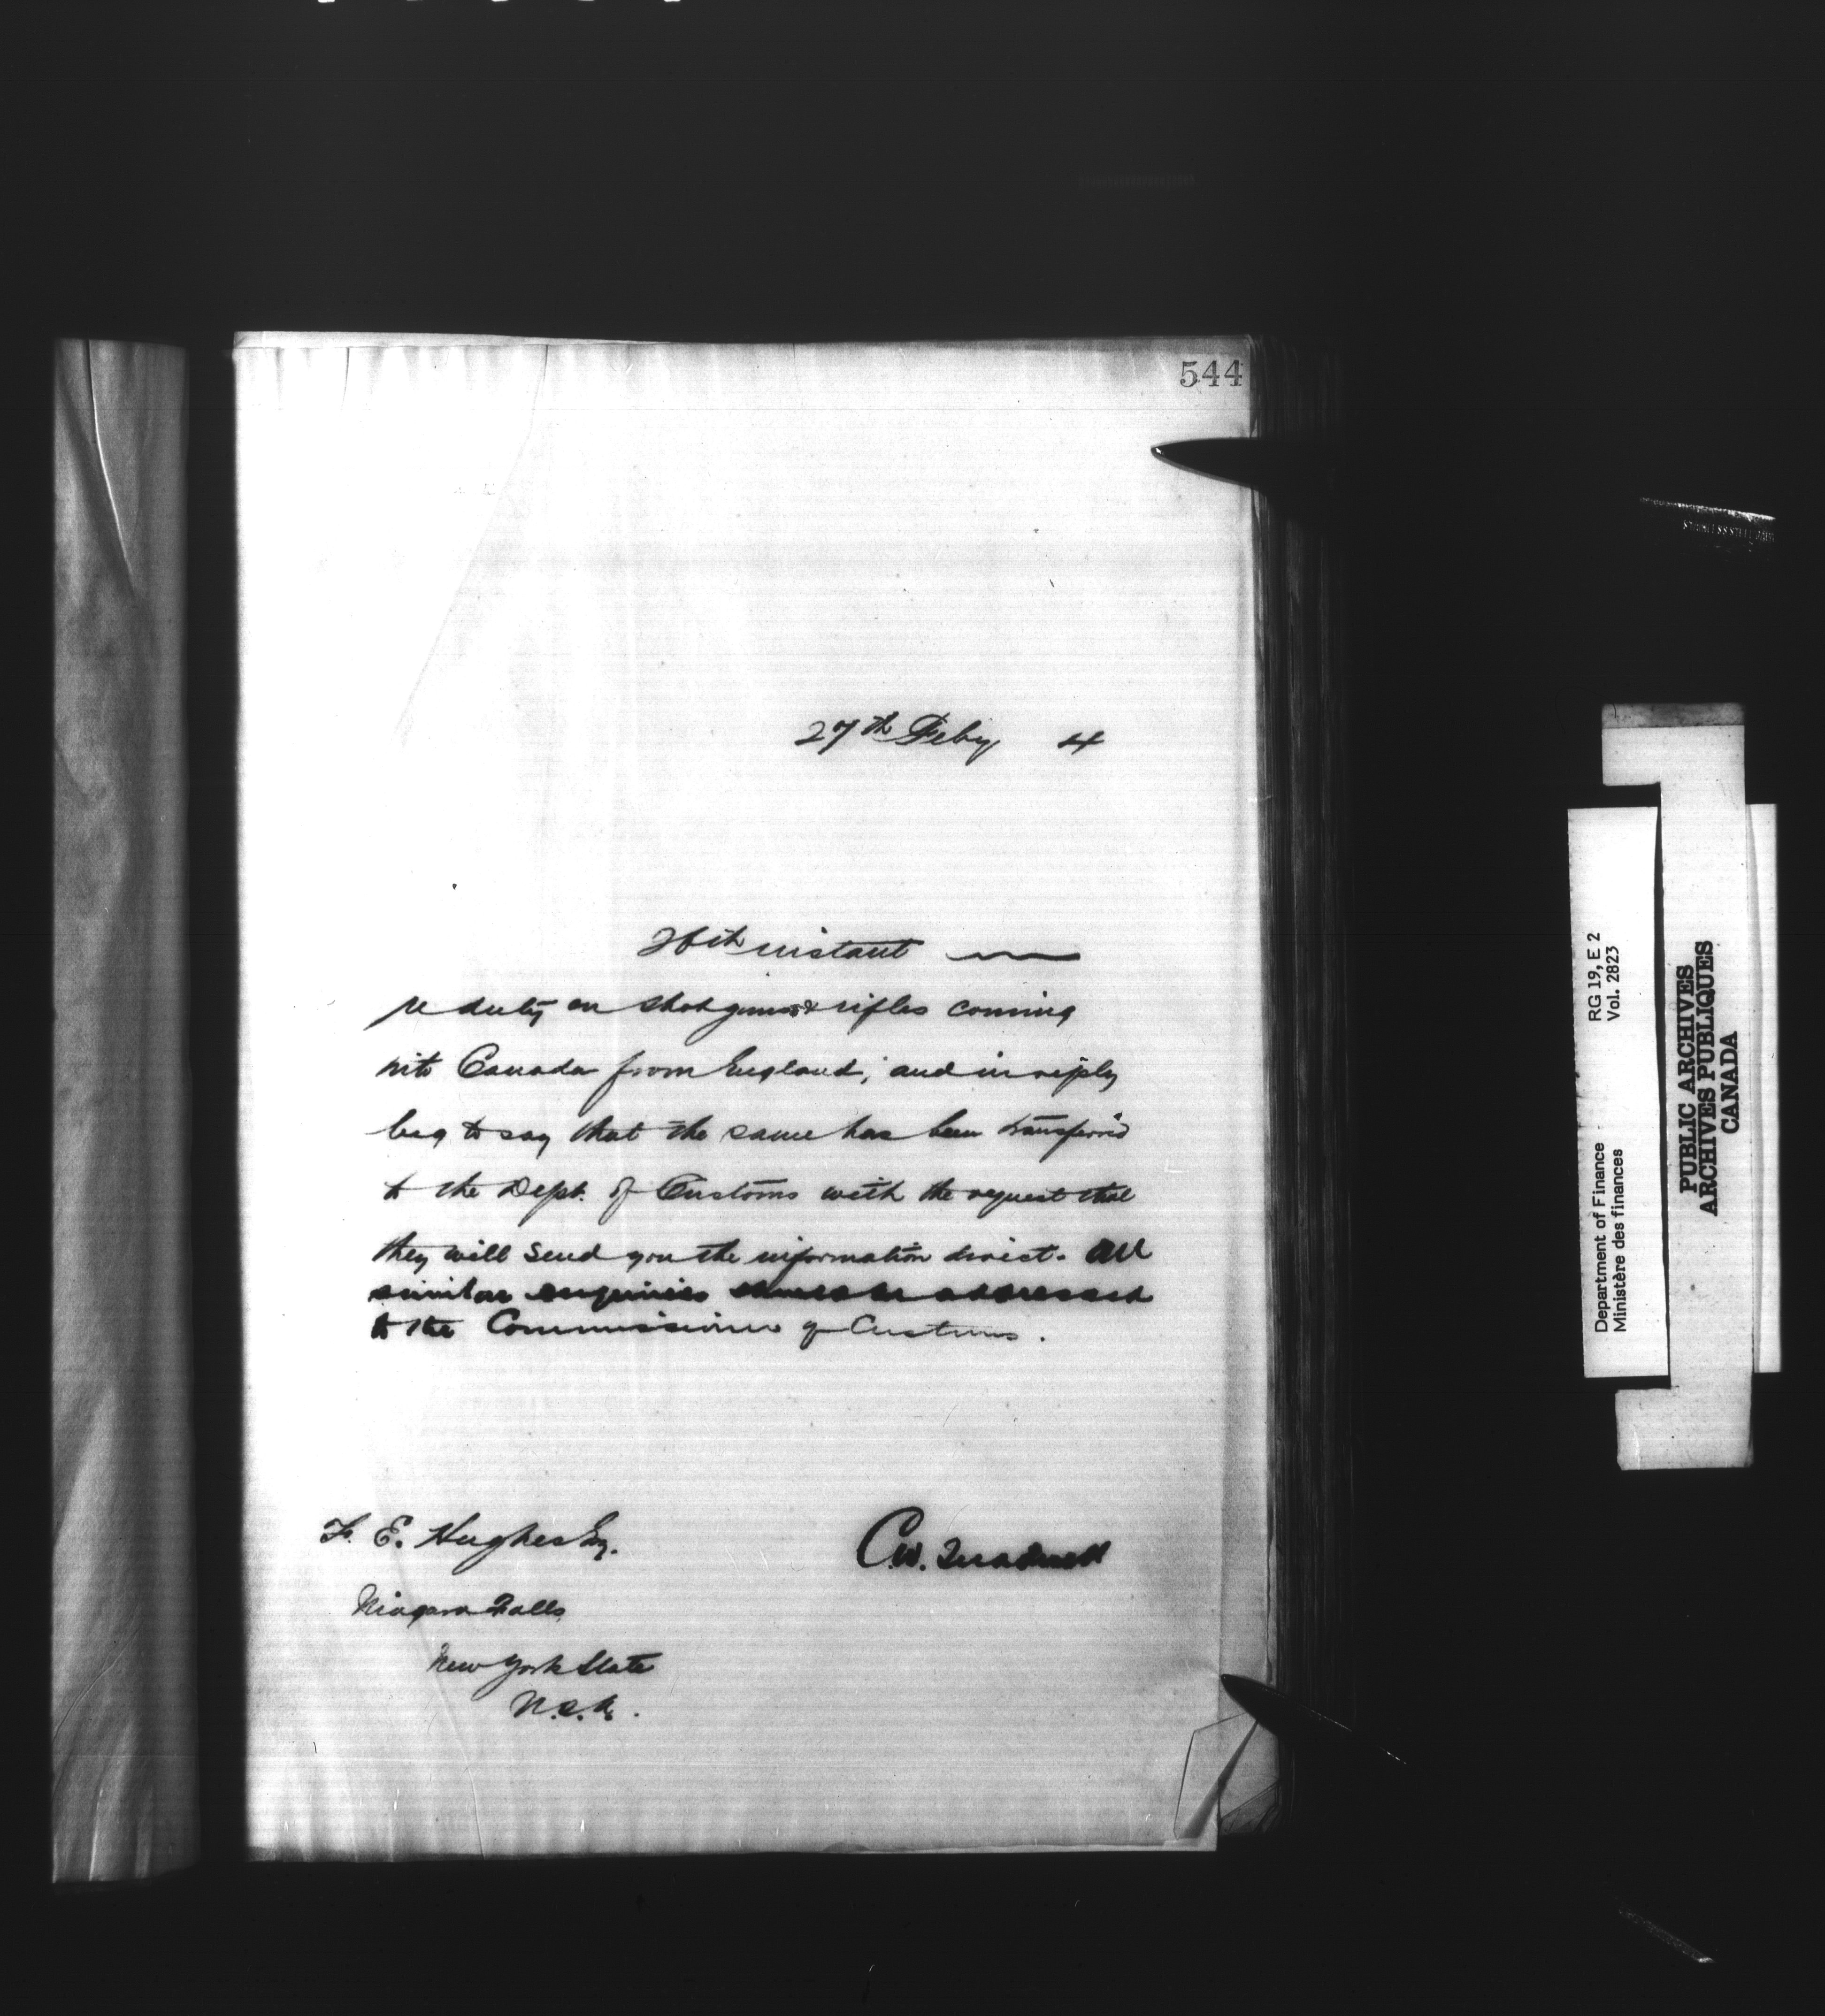 544
27th Feby 4
26th instant
re duty on shotguns & rifles coming
into Canada from England, and in reply
beg to say that the same has been transferred
to the Dept. of Customs with the request that
they will send you the information direct. All
similar enquiries should be addressed
to the Commissioner of Customs.
F. E. Hughes Esq.
C.W. Treadwell
Niagara Falls
New York State
U.S.A.
RG 19, E 2
Vol. 2823
Department of Finance
Ministère des finances
PUBLIC ARCHIVES
ARCHIVES PUBLIQUES
CANADA